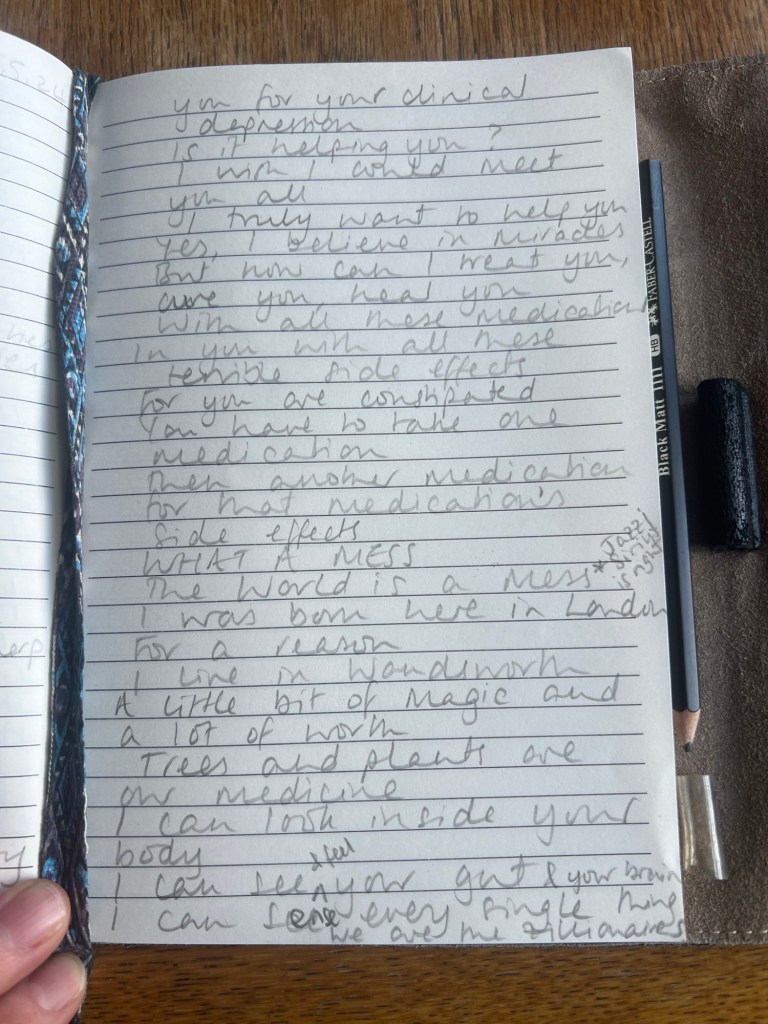 you for your clinical
depression
Is it helping you?
I wish I could meet
you all
I truly want to help you
Yes, I believe in Miracles
But how can I treat you,
cure you, heal you
With all these medication
In you with all these
terrible side effects
For you are constipated
You have to take one
medication
Then another medication
for that medication's
side effects
WHAT A MESS
The World is a Mess *Jazzi
is
I was born here in London
For a reason
I live in Wandsworth
A little bit of Magic and
a lot of worth
Trees and plants are
our medicine
I can look inside your
body
I can see & feel your gut & your brain
I can sense every single thing
We are the zillionaires
Black Matt HB ** FABER-CASTELL